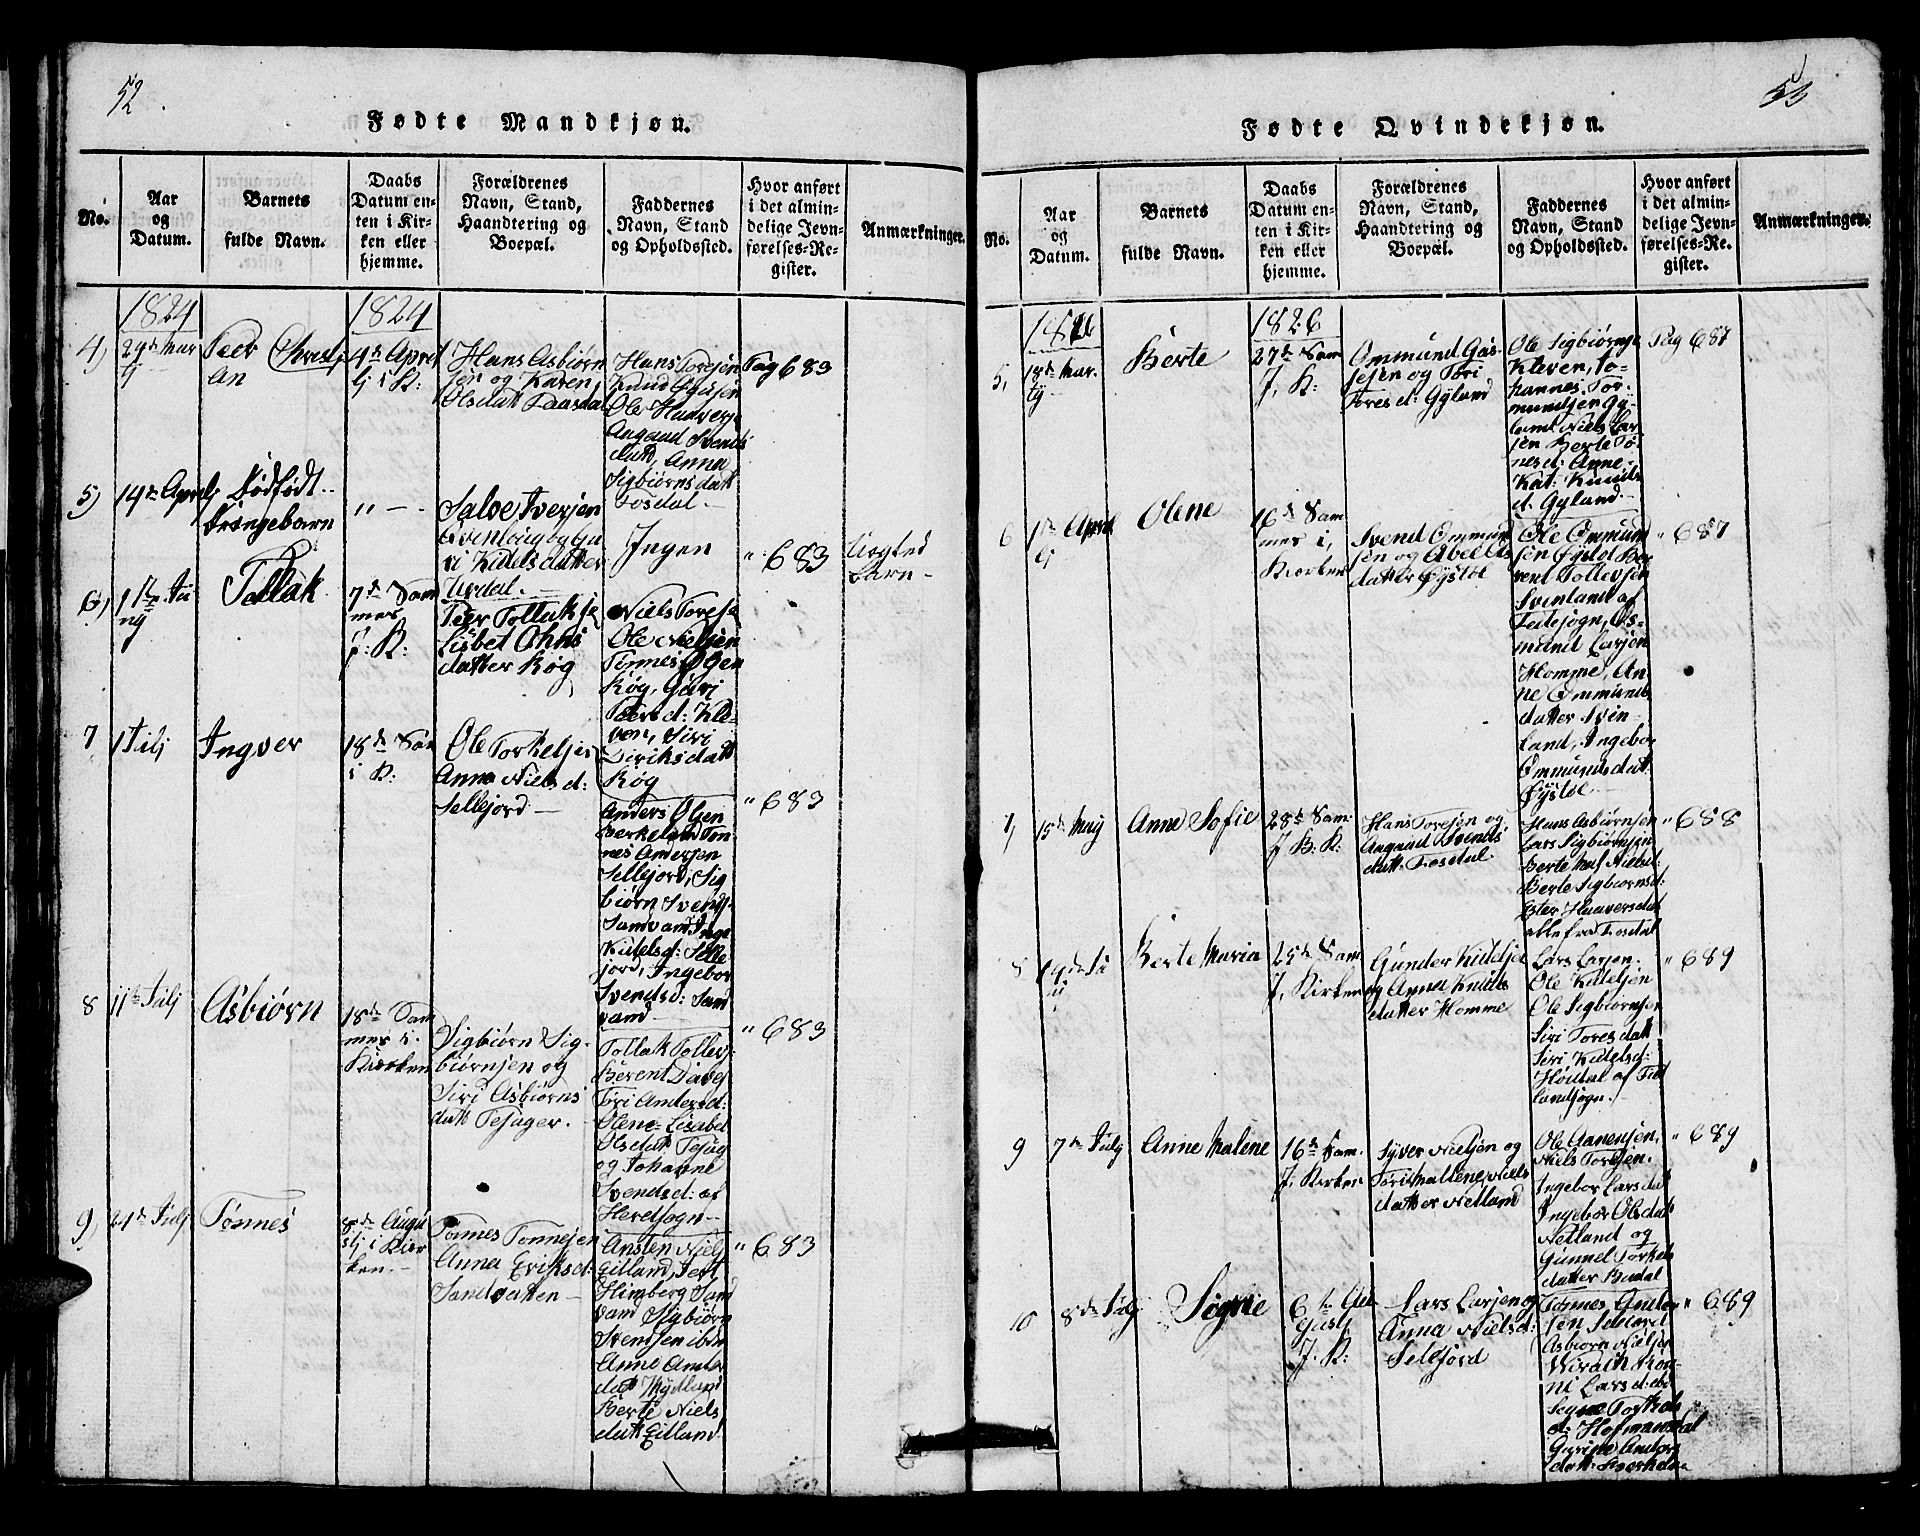 52
Fødte Mandkjøn.
No.
Aar
og
Datum.
Barnets
fulde Navn.
Daabs
Datum en-
ten i Kir-
ken eller
hjemme.
Forældrenes
Navn, Stand,
Haandtering og
Boepæl.
Faddernes
Navn, Stand
og Opholdssted.
Hvor anført
i det almin-
delige Jevn-
førelses-Re-
gister.
Anmærkninger.
1824
1824
4)
24de Mar
tj
Peer Christj
An
4de April
tj i K:
Hans Asbiørn
sen og Karen
Olsdatt Faasdal
Hans Toresen
Knud Ogesen
Ole Haaversj
Angaad Svends
datt, Anna
Sigbiørnsdatt
Fosdal.
Pag 683
5)
14de Aprilj
Dødfødt
Drængebarn
" -
Salve Iversen
Svenlougbygu
ri Kidelsdatter
Urdal.
Ingen
" 683
Uegted
barn -
6)
11te Ju
nj
Tollak
7de Sam
mes
I: K:
Peer Tollaksje
Lisbet Ohns
datter Røg
Niels Toresj
Ole Nielsen
Tønnes Ogsen
Røg, Guri
Peersd: Kle-
ven, Siri
Diriksdatt
Røg
7
1 Julj
Ingver
18de Sam
i K:
Ole Torkelsen
Anna Nielsd:
Sellejord -
Anders Olsen
Berkeland Tøn-
nes Andersen
Sellejord, Sig
biørn Svends.
Samvamd Inge
Kidelsd: Selle
jord, Ingebor
Svendsd: Sam
vamd
" 683
8
11te Julj
Asbiørn
18de Sam
mes i
Kierken
Sigbiørn Sig-
biørnsen og
Siri Asbiørns
datt Tejager.
Tollak Tollevj:
Berent Davej
Tori Andersd:
Olene Lisabet
Olsdatt Tejag
og Johanne
Svendsd: af
Heredsogn
" 683
9)
24de Julj
Tønnes
8de Augu
stj i Kier
ken.
Tønnes Tønnesen
Anna Eriksd:
Sandvatten -
Ansten Nielsj
Eitland, Tert
Himberg Sand
vam Sigbiørn
Svendsen ibm
Anne Ander
dat Mydland
Berte Niels
datt Eitland
" 683
53
Fødte Qvindekjøn.
No.
Aar
og
Datum.
Barnets
fulde Navn.
Daabs
Datum en-
ten i Kir-
ken eller
hjemme.
Forældrenes
Navn, Stand,
Haandtering og
Boepæl.
Faddernes
Navn, Stand
og Opholdssted.
Hvor anført
i det almin-
delige Jevn-
førelses-Re-
gister.
Anmærkninger.
1826
1826
5,
18de Mar.
tj
Berte
27de Sam
I, K:
Ommund Gas-
sesen og Tori
Tores d: Gyland
Ole Sigbiørnsj
Kleven, Jo-
hannes Tor-
mundsen Gy-
land Niels Lar
sen Berte To-
nesd: Anne-
Kat: Knuds
d. Gyland
Pag 687
6
1de Apriel
lj
Olene
16de Sam
mes i,
Kierken
Svend Ommund
sen og Abel As
datter Øystøl
Ole Ommund
sen Øystøl Be
rent Tollevsen
Svinland af
Fedesogn, Os-
mund Larsen
Homme, An
ne Ommunds
datter Svin-
land, Ingebor
Ommundsdat
Øystøl
" 687
7,
15de Maj
Anne Sofie
28de Sam:
I K. K:
Hans Toresen og
Angaad Svends
datt: Fosdal
Hans Asbiørnsen
Lars Sigbiørnsen
Berte Mal Nielsd:
Berte Sigbiørnsd:
Ester Haaversdat
alle fra Fosdal
" 688
8
19de Ju
nj
Berte Maria
25de Sam
I, Kirken
Gunder Kidelsje
og Anna Knuds
datter Homme
Lars Larsen.
Ole Kidelsen
Ole Sigbiørnsen
Siri Toresdatt
Siri Kidelsd:
Høidal af Fed
landsogn.
" 689
9
7de Julj
Anne Malene
16de Sam.
I, Kirken
Syver Nielsen og
Tori Mallene Niels
datter Netland
Ole Aanensen,
Niels Toresen.
Ingebor Larsdat
Ingebor Olsdatt
Netland og
Gunnel Torkels
datter Budal
" 689
10
8de Julj
Søgnie
6te Au
gustj
I. K:
Lars Larsen og
Anna Nielsd:
Selejord
Tønnes Ander
sen Selejord
Asbiørn Nielsen
Wiralit Kor-
ni Larsd: ibd
Segne Torkels
d. Hofmansdal
Gurine Anders
datt: Berkela
" 689